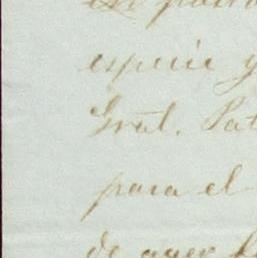 especie y
Gral. Pat
para el
de ayer